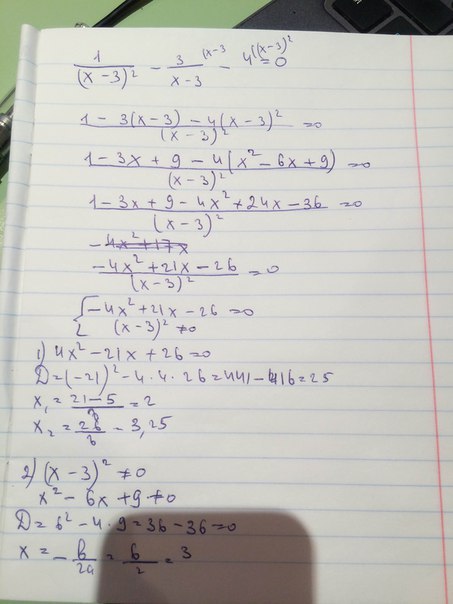 1/(x-3)² - 3/(x-3) ⁽ˣ⁻³ - 4 ⁽⁽ˣ⁻³⁾² = 0
(1-3(x-3)-4(x-3)²)/(x-3)² = 0
(1-3x+9-4(x²-6x+9))/(x-3)² = 0
(1-3x+9-4x²+24x-36)/(x-3)² = 0
-4x²+17x
(-4x²+21x-26)/(x-3)² = 0
{ -4x²+21x-26=0
(x-3)²≠0
1) 4x²-21x+26=0
D=(-21)²-4·4·26=441-416=25
x₁=(21-5)/8=2
x₂=26/8=3,25
2) (x-3)²≠0
x²-6x+9≠0
D=6²-4·9=36-36=0
x=-b/2a=6/2=3